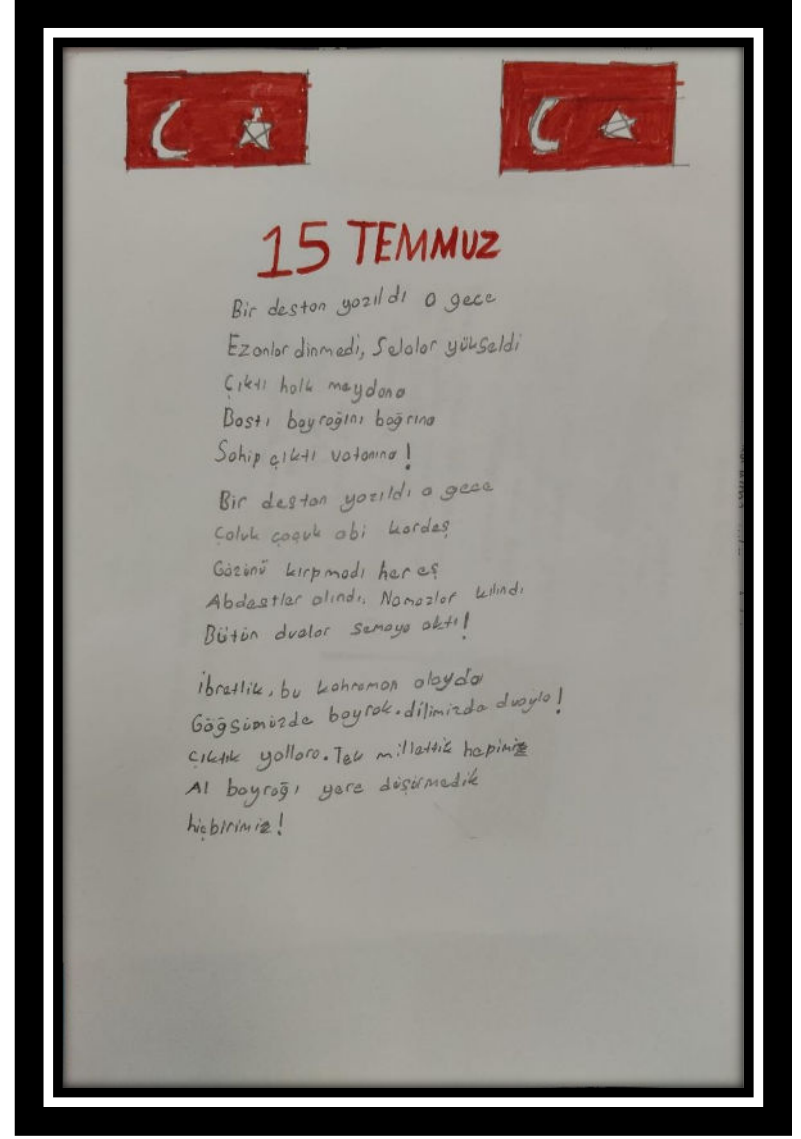 15 TEMMUZ
Bir destan yazıldı o gece
Ezanlar dinmedi, Selalar yükseldi
Çıktı halk meydana
Bastı bayrağını bağrına
Sahip çıktı vatanına!
Bir destan yazıldı o gece
Çoluk çoçuk abi kardeş
Gözünü kırpmadı her eş
Abdestler alındı, Namazlar kılındı
Bütün dualar semaya aktı!
İbretlik, bu kahraman olayda
Göğsümüzde bayrak. dilimizde duayla!
Çıktık yollara. Tek millettik hepimiz
Al bayrağı yere düşürmedik
hiçbirimiz!